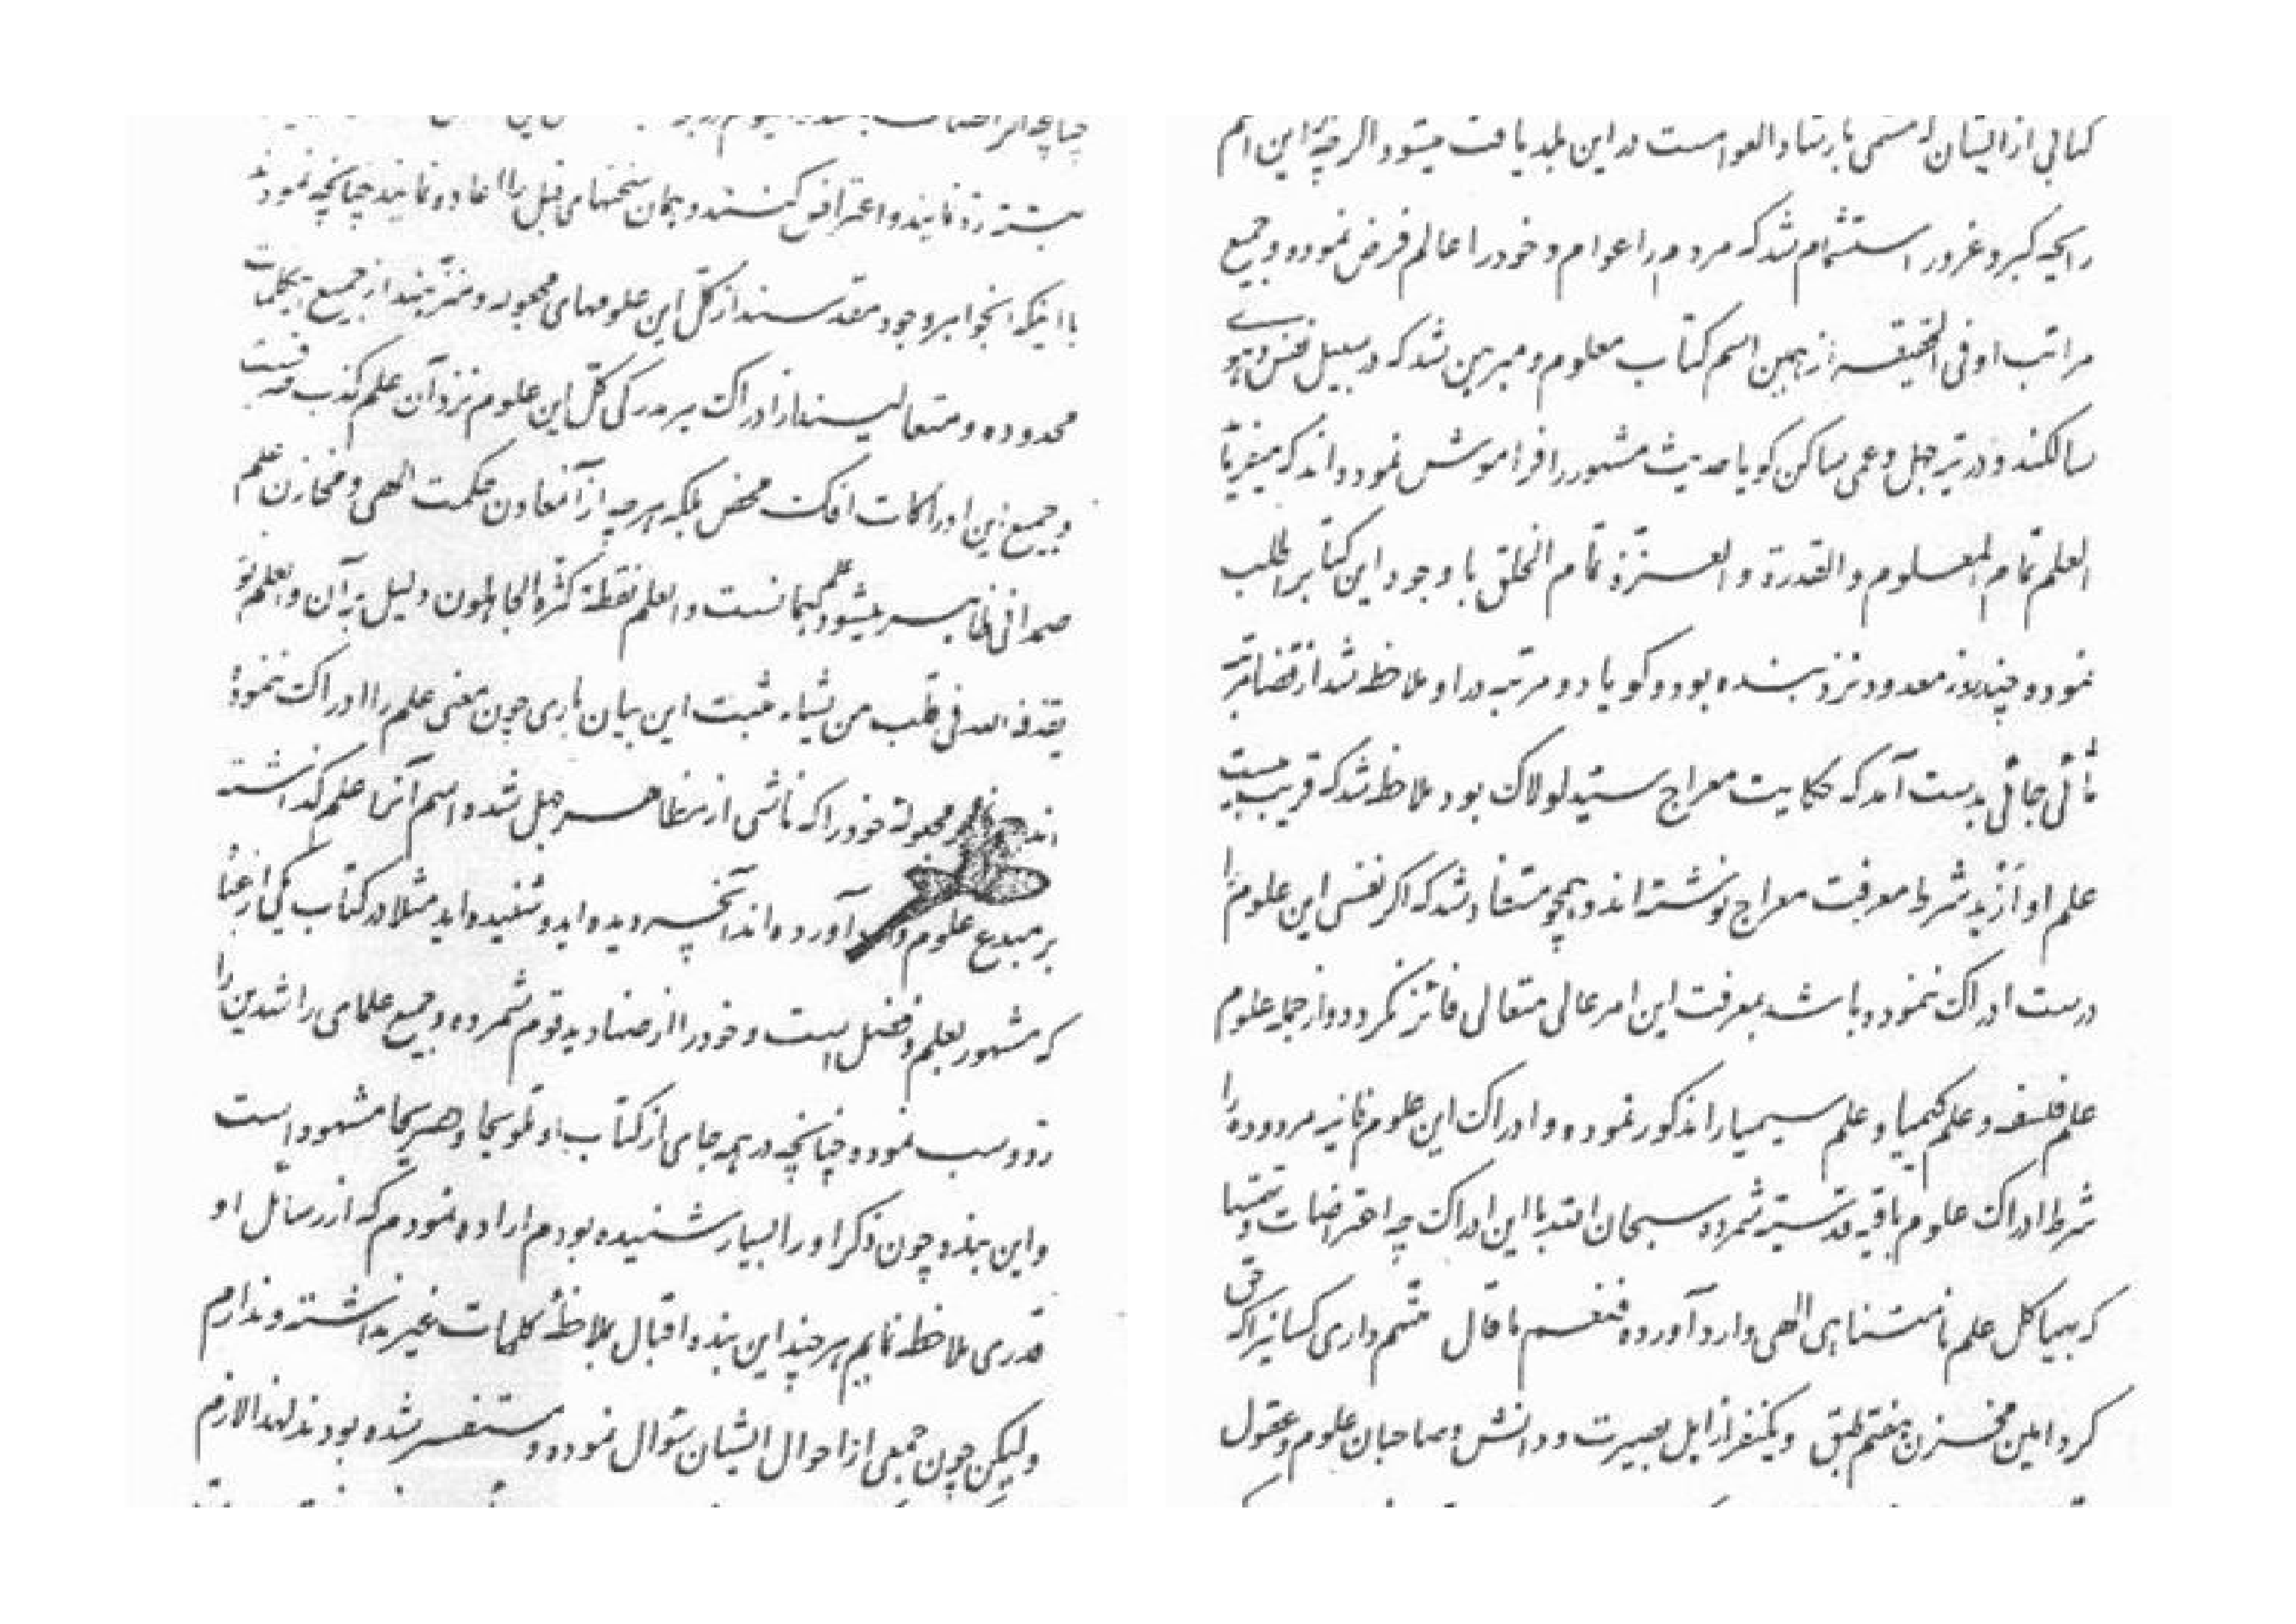 بیشتر رد نمایند و اعتراض کنند و همان سخنهای قبل را اعاده نمایند چنانچه نمودند
با اینکه آنجواهر وجود مقدسند از کلّ این علومهای مجعوله و منزّهند از جمیع این کلمات
محدوده و متعالیند از ادراک هر مدرکی کلّ این علوم نزد آن علم کذب صرفست
و جمیع این ادراکات افک محض بلکه هرچه از آن معادن حکمت الهی و مخازن علم
صمدانی ظاهر میشود علم همانست و العلم نقطة کثّرها الجاهلون دلیل بر آن و العلم نور
یقذفه الله فی قلب من یشاء مثبت این بیان باری چون معنی علم را ادراک ننموده
اند مجعوله خود را که ناشی از مظاهر جهل شده اسم آنرا علم گذاشته و
بر مبدع علوم وارد آورده‌اند آنچه دیده‌اید و شنیده‌اید مثلا در کتاب یکی از عباد
که مشهور بعلم و فضل است و خود را از صنادید قوم شمرده و جمیع علمای راشدین را
رد و سب نموده چنانچه در همه جای از کتاب او تلویحا و تصریحا مشهود است
و این بنده چون ذکر او را بسیار شنیده بودم اراده نمودم که از رسائل او
قدری ملاحظه نمایم هر چند این بنده اقبال بملاحظهٔ کلمات غیر نداشته و ندارم
ولیکن چون جمعی از احوال ایشان سؤال نموده و مستفسر شده بودند لهذا لازم
کتابی از ایشان که مسمی بارشاد العوام است در این بلد یافت میشود اگر چه از این اسم
رایحه کبر و غرور استشمام شد که مردم را عوام و خود را عالم فرض نموده و جمیع
مراتب او فی الحقیقه از همین اسم کتاب معلوم و مبرهن شد که در سبیل نفس و هوی
سالکند و در تیه جهل و عمی ساکن گویا حدیث مشهور را فراموش نموده‌اند که میفرماید
العلم تمام المعلوم و القدرة و العزة تمام الخلق با وجود این کتاب را طلب
نموده چند روز معدود نزد بنده بود و گویا دو مرتبه در او ملاحظه شد از قضا مرتبه
ثانی جائی بدست آمد که حکایت معراج سیّد لولاک بود ملاحظه شد که قریب بیست
علم او ازید شرط معرفت معراج نوشته‌اند و همچو مستفاد شد که اگر نفسی این علوم را
درست ادراک ننموده باشد بمعرفت این امر عالی متعالی فائز نگردد و از جمله علوم
علم فلسفه و علم کیمیا و علم سیمیا را مذکور نموده و ادراک این علوم فانیه مردوده را
شرط ادراک علوم باقیه قدسیّه شمرده سبحان الله با این ادراک چه اعتراضات و تهمتها
که بهیاکل علم نامتناهی الهی وارد آورده فنعم ما قال متّهم داری کسانیرا که حق
کرد امین مخزن هفتم طبق و یکنفر از اهل بصیرت و دانش و صاحبان علوم و عقول